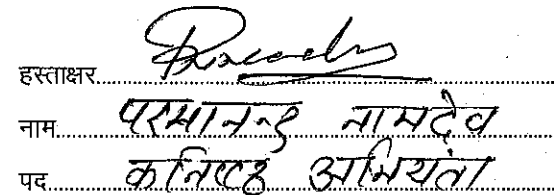 हस्ताक्षर
नाम परमानन्द नामदेव
पद कनिष्ठ अभियंता